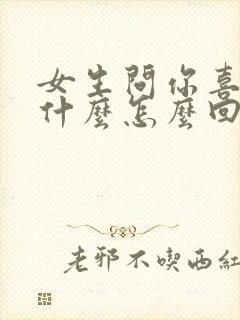 女生問你喜
什麼怎麼回
老邪不喫西紅